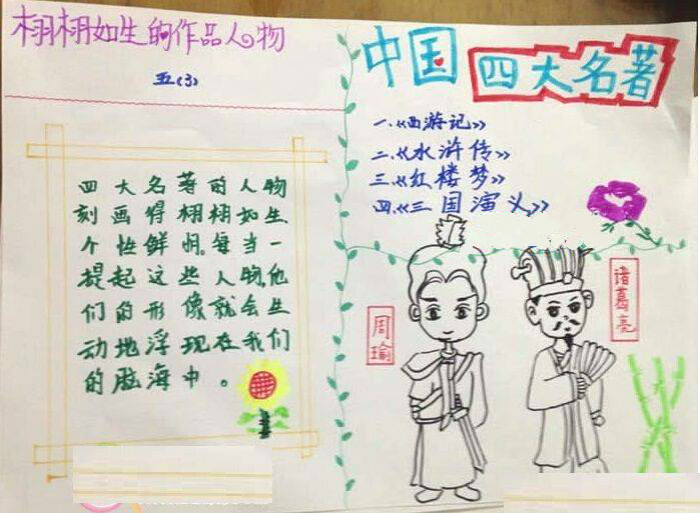 栩栩如生的作品人物
五(3)
四大名著的人物
刻画得栩栩如生
个性鲜明。每当一
提起这些人物,他
们的形像就会生
动地浮现在我们
的脑海中。
中国四大名著
一.《西游记》
二.《水浒传》
三.《红楼梦》
四.《三国演义》
周瑜
诸葛亮